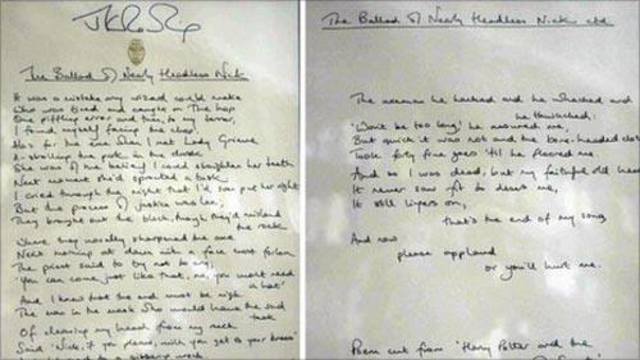 JK Rowling
The Ballad of Nearly Headless Nick
It was a mistake any wizard could make
Who was tired and caught on the hop
One piffling error and then, to my terror,
I found myself facing the chop.
Alas for the eve when I met Lady Grieve
A-strolling the park in the dusk
She was of the belief I could straighten her teeth
Next moment she'd sprouted a tusk
I cried through the night that I'd soon put her right
But the process of justice was lax;
They brought out the block, though they'd mislaid
the rock
Where they usually sharpened the axe
Next morning at dawn with a face most forlorn
The priest said to try not to cry,
'You can come just like that, no, you won't need
a hat'
And I knew that the end must be nigh
The man in the mask who would have the sad
task
Of cleaving my head from my neck
Said 'Nick, if you please, will you get to your knees'
to a gibbering wreck
The Ballad of Nearly Headless Nick ctd
The axeman he hacked and he whacked and
he thwacked;
'Won't be too long' he assured me,
But quick it was not and the bone-headed clot
Took forty five goes 'til he floored me.
And so I was dead, but my faithful old head
It never saw fit to desert me,
It still lingers on,
that's the end of my song
And now
please applaud
or you'll hurt me.
Poem cut from 'Harry Potter and the